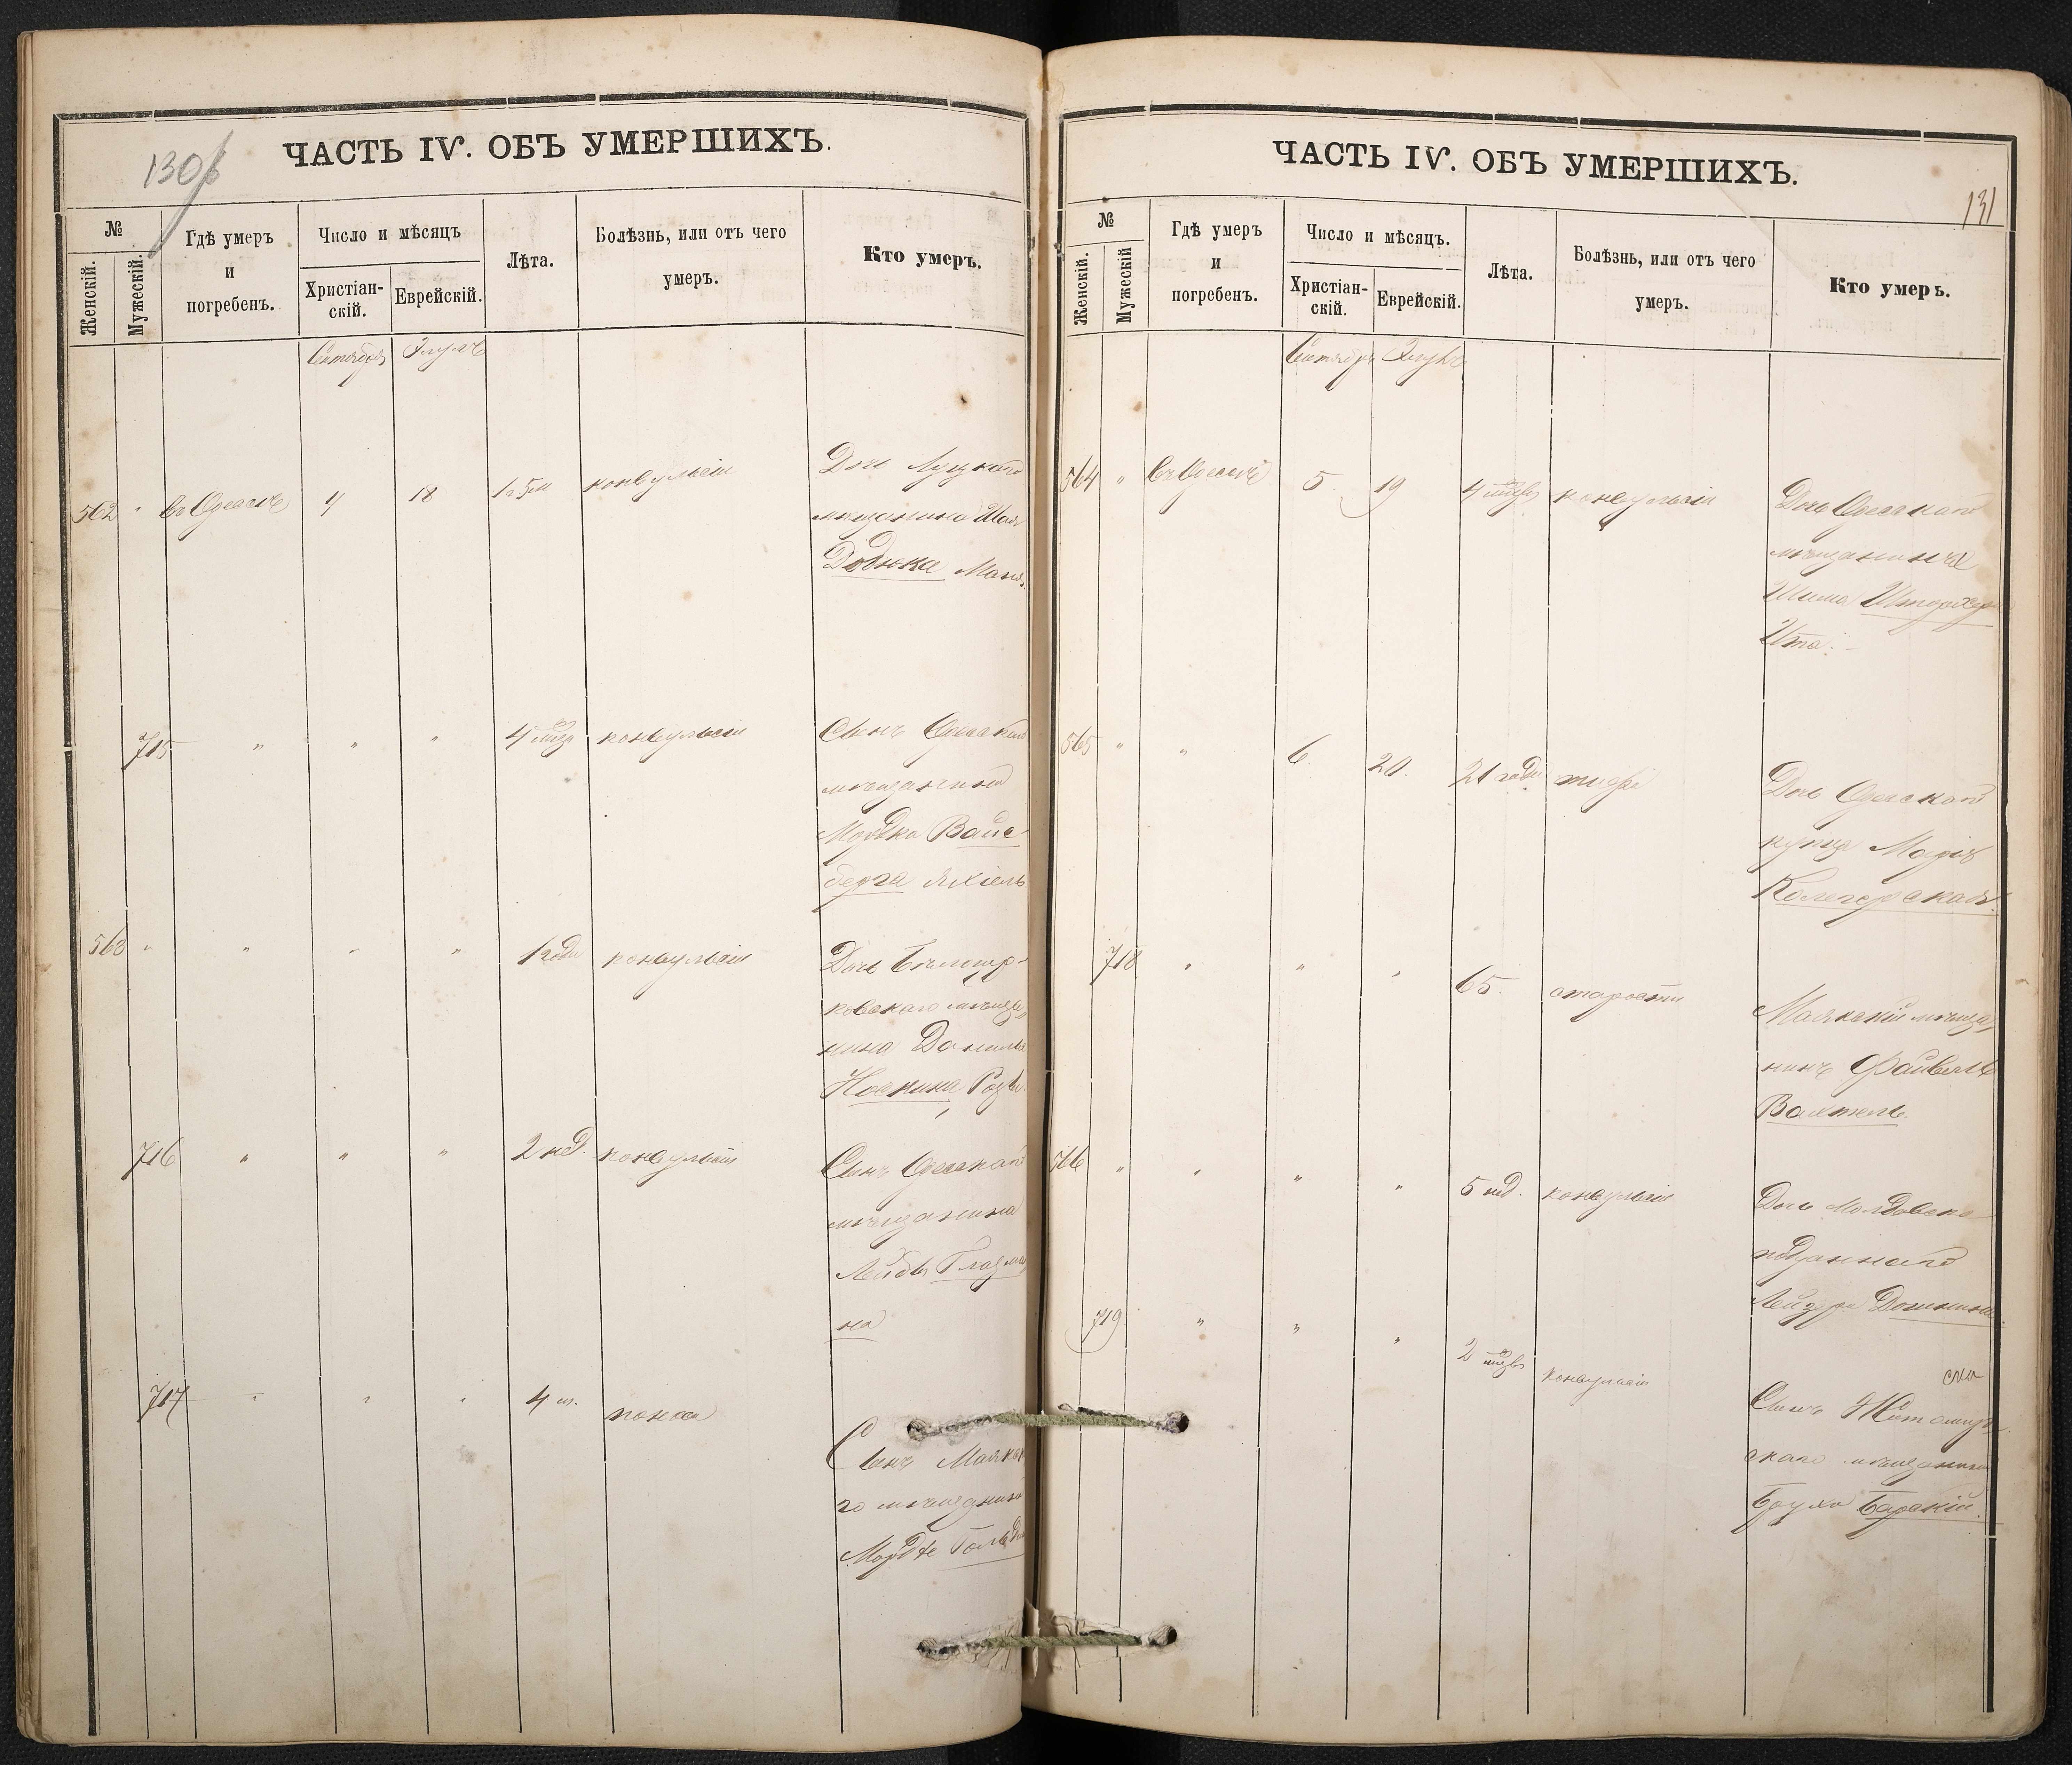 130
ЧАСТЬ IV. ОБЪ УМЕРШИХЪ.
№
Женскій.
Мужескій.
Гдѣ умеръ
и
погребенъ.
Число и мѣсяцъ
Христіан-
скій.
Еврейскій.
Лѣта.
Болѣзнь, или отъ чего
умеръ.
Кто умеръ.
Сентября Элулъ
562 " Въ Одессѣ 4 18 1 г 5 м конвульсіи Дочь Луцкаго
мѣщанина Шая
Додюка Маня
715 " " " 4 мѣс конвульсіи Сынъ Одесскаго
мѣщанина
Мордка Вайс
берга Яхіель
563 " " " " 1 года конвульсіи Дочь Бѣлоцер-
ковскаго мѣща-
нина Даніила
Носкина Розы
716 " " " 2 нед. конвульсіи Сынъ Одесскаго
мѣщанина
Лейбы Глазма
на
717 " " " 4 м. поноса
Сынъ Маякска
го мѣщанина
Мордке Гольд
ЧАСТЬ IV. ОБЪ УМЕРШИХЪ.
131
№
Женскій.
Мужескій
Гдѣ умеръ
и
погребенъ.
Число и мѣсяцъ.
Христіан-
скій.
Еврейскій.
Лѣта.
Болѣзнь, или отъ чего
умеръ.
Кто умеръ.
Сентябрь Элулъ
564 " Въ Одессѣ 5. 19 4 мѣс конвульсіи Дочь Одесскаго
мѣщанина
Шима
Ита.
565 " " 6. 20. 21 года тифа
Дочь Одесскаго
купца Марія
Калегорская
718 " " " 65. старости
Маякскій мѣща-
нинъ Файвель
Валтель.
566 " " " " 5 нед. конвульсіи
Дочь Молдавско
подданнаго
Лейзера
719 " " " 2 мѣс конвульсіи
Сынъ Житомир
скаго мѣщанина
Бруха Барскій.